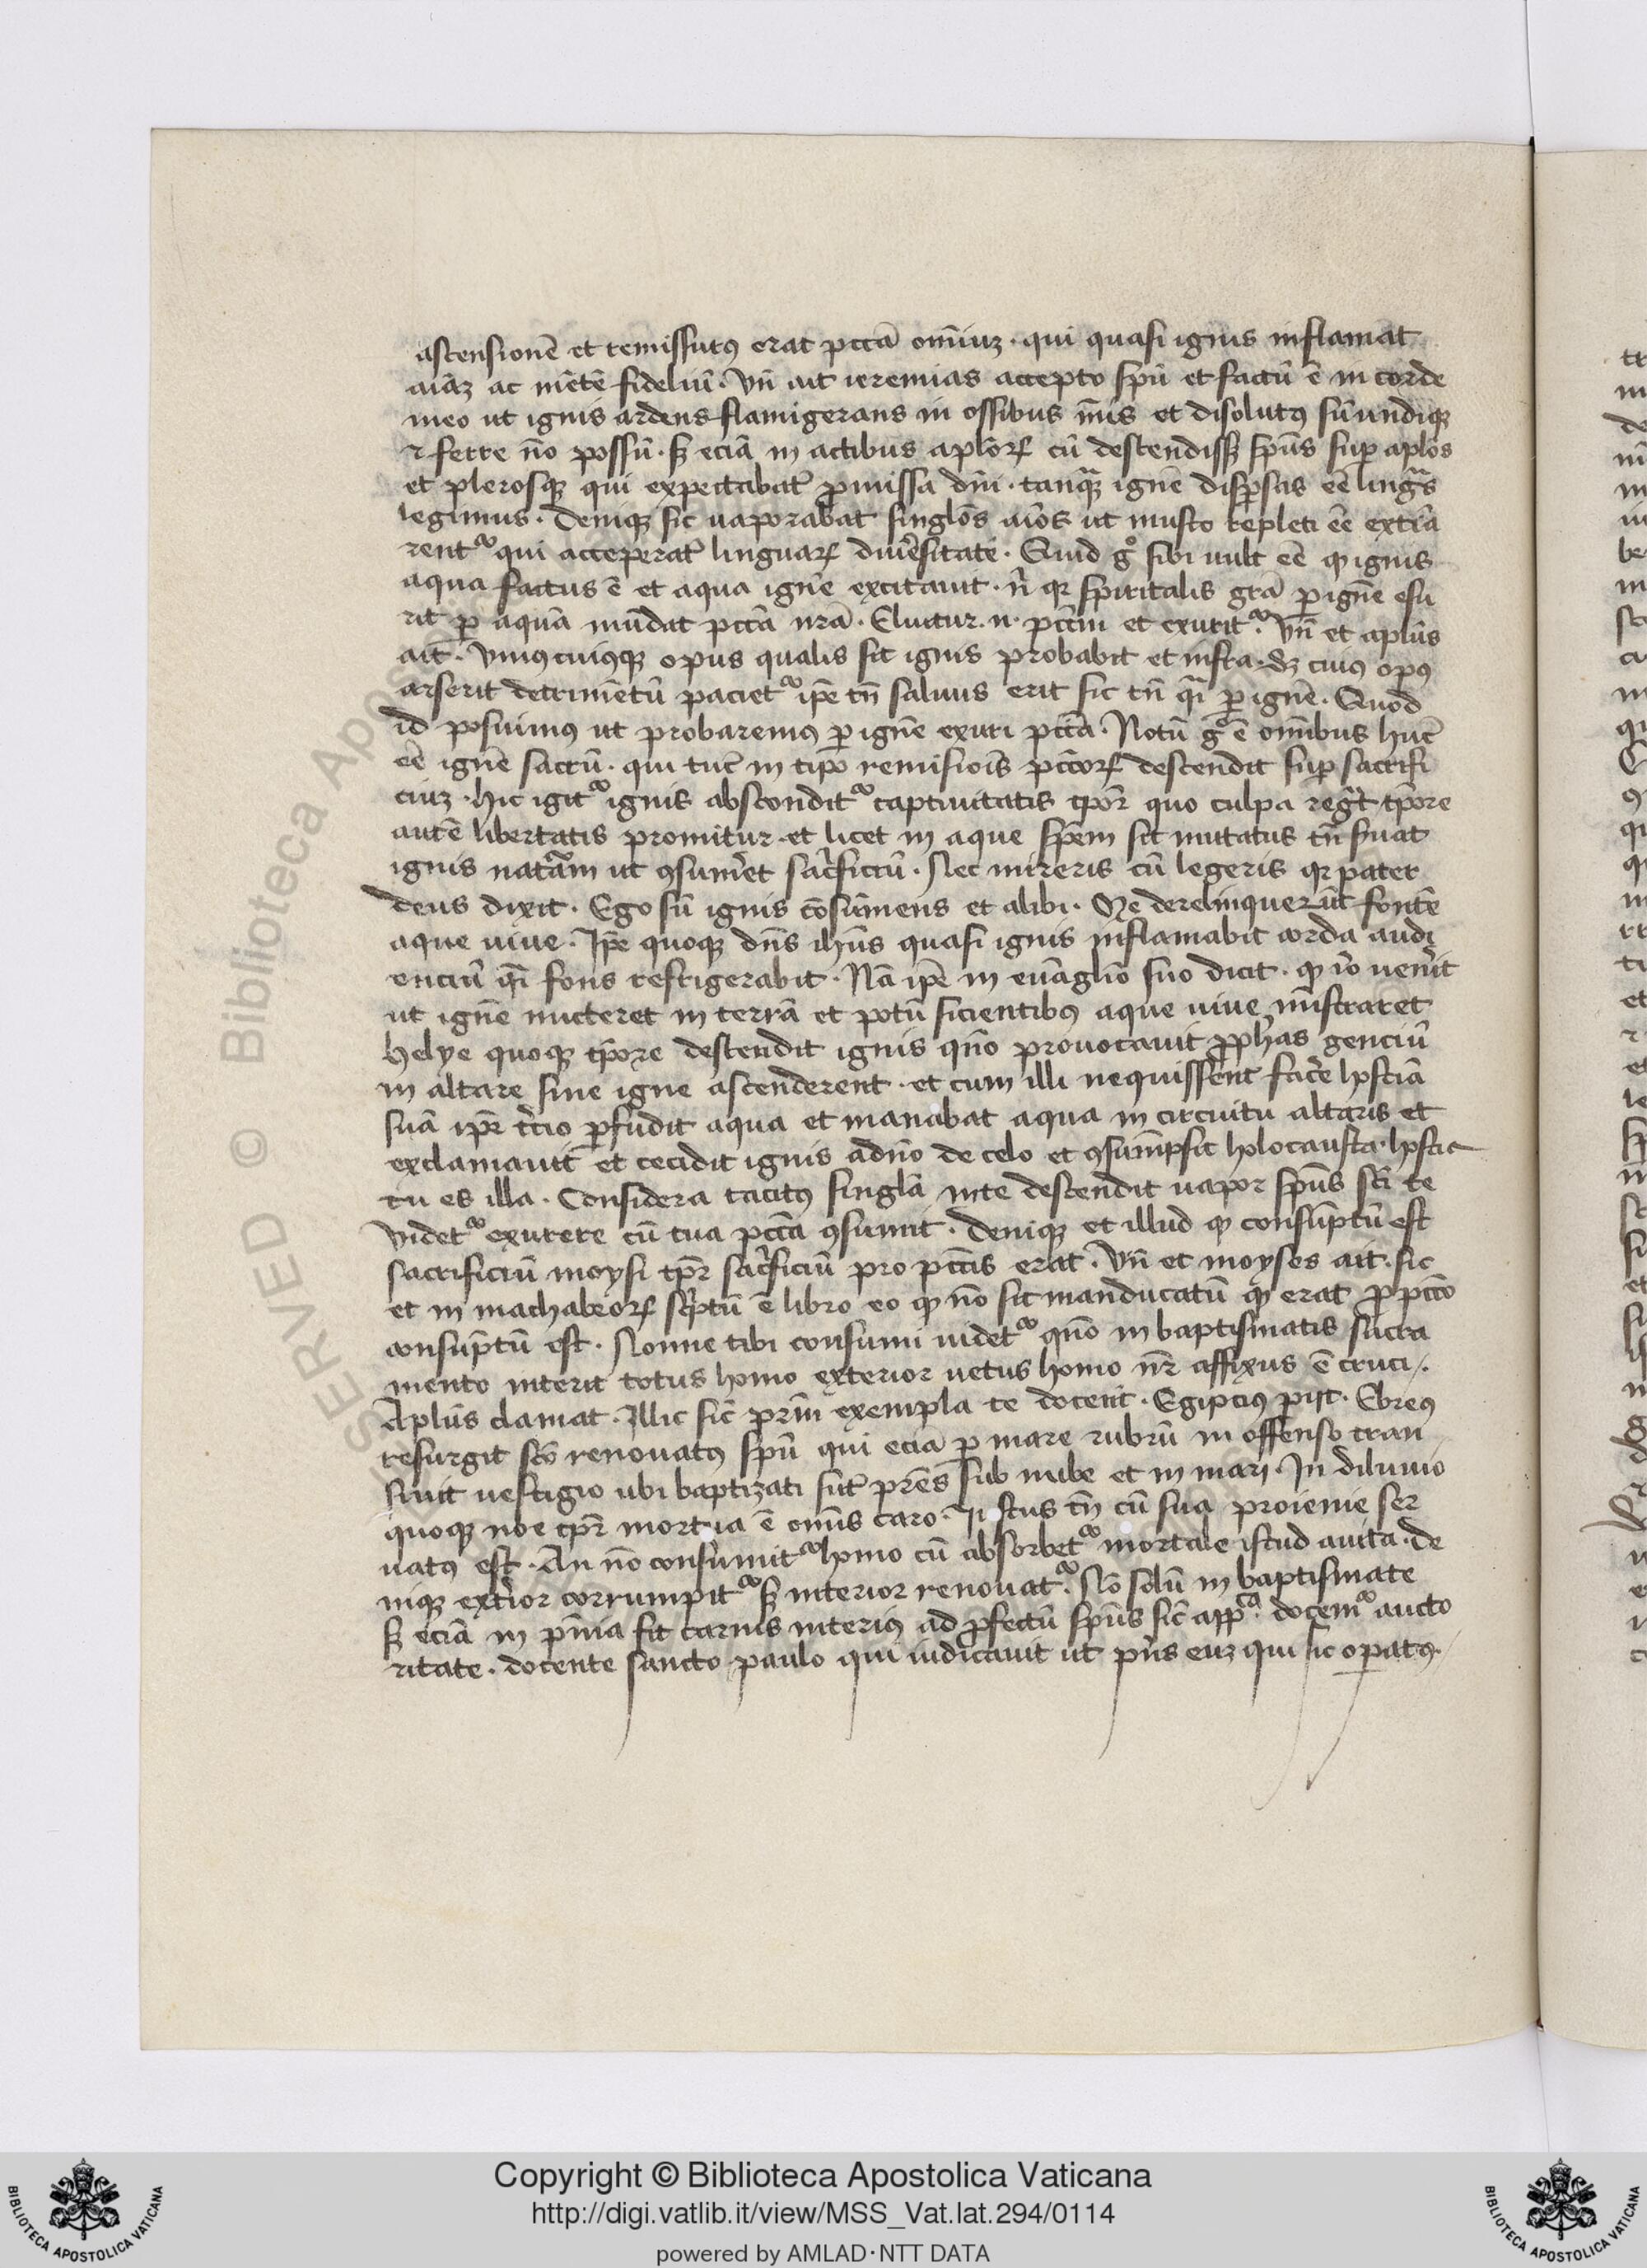 ascensionē et remissurꝰ erat pctā̄ oīniuꝫ · qui quasi ignis inflamat
aīaꝫ ac mētē fideliū · Vn̄ ait ieremias accepto spū et factū ē in corde
meo ut ignis ardens flamigerans in ossibus m̄is et disolutꝰ sū undiqꝫ
⁊ ferre nō possū · sꝫ eciā in actibus aplōꝝ cū descendissꝫ spūs suꝑ aplōs
et plerosqꝫ qui expectabāt ꝓmissa dn̄i · tanqꝫ ignē disꝑsas eē lingͣs
legimus · deniqꝫ sic uaporabat singlōs aīos ut musto repleti eē extīa
rent᷑ qui acceperāt linguaꝝ diuersitatē · Quid gͦ sibi uult eē ꝙ ignis
aqua factus ē et aqua ignē excitauit · n̄ qꝛ spiritalis grā ꝑ ignē exu
rit ꝑ aquā mūdat pctā nrā · Eluitur · n · pctm̄ et exurit᷑ · Vn̄ et aplūs
ait · Vniꝰcuiꝰqꝫ opus qualis sit ignis probabit et infra · Sꝫ cuiꝰ opꝰ
arserit detrimētū paciet᷑ ipē tn̄ saluus erit sic tn̄ qͣi ꝑ ignē · Quod
id posuimꝰ ut probaremꝰ ꝑ ignē exuri pctā · Notū gͦ ē oīnibus hūc
eē ignē sacrū · qui tūc in tipo remisiōis pctōꝝ descendit suꝑ sacrifi
ciuꝫ · Hic igit᷑ ignis abscondit᷑ captiuitatis tpōr quo culpa regͣt tpōre
autē libertatis promitur · et licet in aque spēm sit mutatus tn̄ sūat
ignis natͣam ut ꝯsumēt sacͥficiū · Nec mireris cū legeris qꝛ pater
deus dixit · Ego sū ignis cōsūmens et alibi · Me dereliquerūt fontē
aque uiue · Ipē quoqꝫ dn̄s ihūs quasi ignis inflamabit corda audi
enciū qͣi fons refrigerabit · Nā ipē in euāgliō suo dicit · ꝙ iō uenit
ut ignē mitteret in terrā et potū sicientibꝰ aque uiue mīstraret
Helye quoqꝫ tpōre descendit ignis qn̄o prouocauit ꝓphās genciū
in altare sine igne ascenderent · et cum illi nequissent facere hostiā
suā ipē tͤcio ꝑfudit aqua et manabat aqua in circuitu altaris et
exclamauit et cecidit ignis a dn̄o de celo et ꝯsūmpsit holocausta · hostia
tu es illa · Considera tacitꝰ singlā in te descendit uapor spūs scī te
Videt᷑ exurere cū tua pctā ꝯsumit · deniqꝫ et illud ꝙ consūptū est
sacrificiū moysi tpōr sacͥficiū pro pctīs erat · Vn̄ et moyses ait · sic
et in machabeoꝝ scͥptū ē libro eo ꝙ nō sit manducatū ꝙ erat ꝓ pctō
consūptū est · Nonne tibi consumi uidet᷑ qn̄o in baptismatis sacra
mento interit totus homo exterior uetus homo nr̄ affixus ē cruci ·
Aplūs clamat · Illic sic̄ pr̄m exempla te docent · Egipciꝰ pijt · Ebreꝰ
resurgit scō renouatꝰ spū qui eciā ꝑ mare rubrū in offenso tran
siuit uestigio ubi baptizati sūt prēs sub nube et in mari · In diluuio
quoqꝫ noe tpōr mortua ē omīs caro · Iustus tn̄ cū sua proienie ser
uatꝰ est · An nō consūmit᷑ homo cū absorbet᷑ mortale istud a uita · de
niqꝫ exterior corrumpit᷑ sꝫ interior renouat᷑ · Nō solū in baptismate
sꝫ eciā in pn̄ia fit carnis interiꝰ ad ꝓfectū spūs sic̄ appͨᵃ docemꝰ aucto
ritate · docente sancto paulo qui iudicauit ut pn̄s euꝫ qui sic opatꝰ ·
Copyright © Biblioteca Apostolica Vaticana
http://digi.vatlib.it/view/MSS_Vat.lat.294/0114
powered by AMLAD·NTT DATA